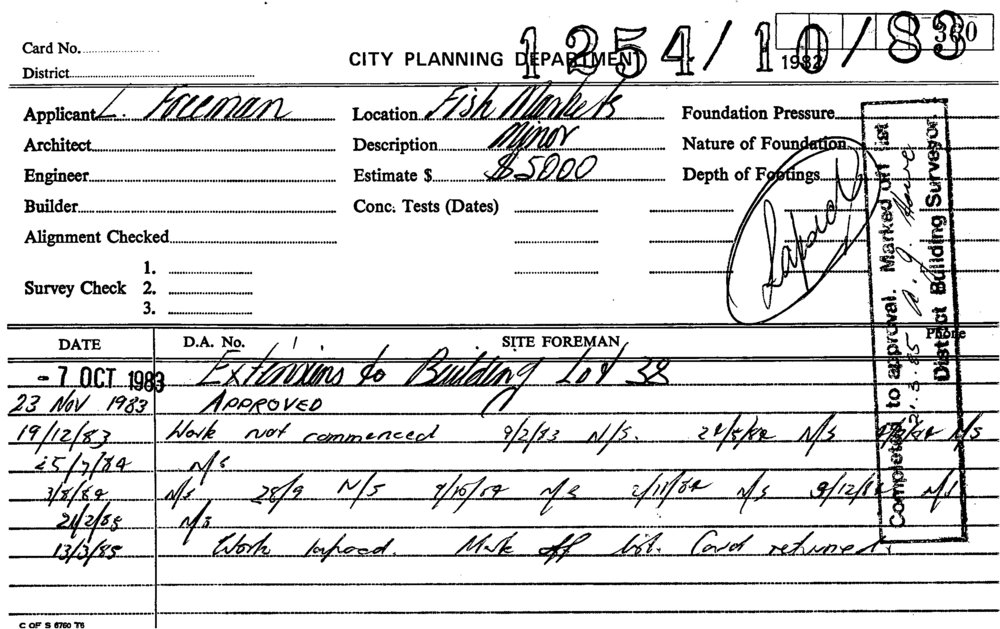 360
Card No.
CITY PLANNING DEPARTMENT 1254/10/83
1982
District
Applicant L. Freeman Location Fish Markets Foundation Pressure
Architect Description Minor Nature of Foundation
Engineer Estimate $ $5000 Depth of Footings
Builder Conc. Tests (Dates)
Lapsed
Alignment Checked
1.
Survey Check 2.
3.
Completed to approval. Marked off list
21.3.85
District Building Surveyor.
DATE D.A. No. SITE FOREMAN Phone
- 7 OCT 1983 Extensions to Building Lot 38
23 NOV 1983 APPROVED
19/12/83 Work not commenced 9/2/83 N/S. 24/5/84 N/S N/S
25/7/84 N/S
3/8/84 N/S 28/9 N/S 9/10/84 N/S 2/11/84 N/S 9/12/84 N/S
21/2/85 N/S
13/3/85 Work lapsed. Mark off list. Card returned.
C OF S 6760 T6